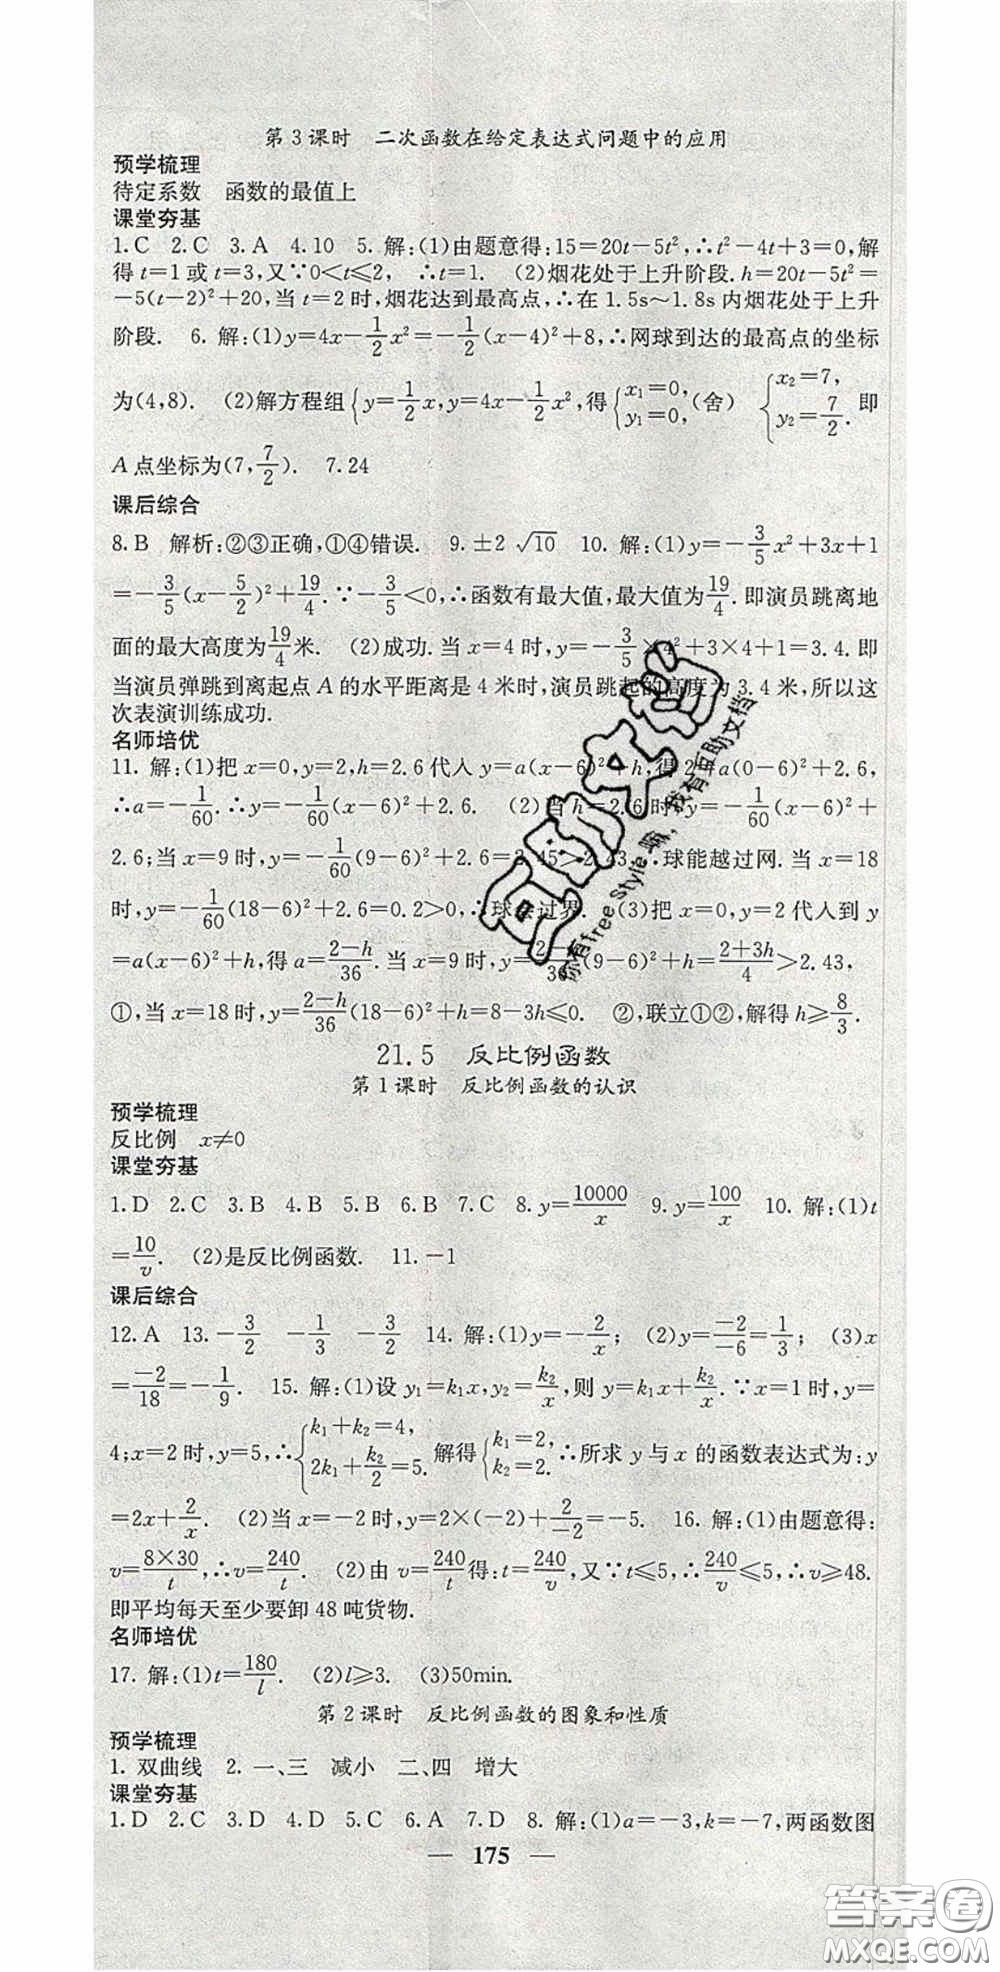 第3课时　二次函数在给定表达式问题中的应用
预学梳理
待定系数　函数的最值上
课堂夯基
1.C　2.C　3.A　4.10　5.解:(1)由题意得:15=20t-5t²,∴t²-4t+3=0,解
得t=1或t=3,又∵0<t≤2,　∴t=1.　(2)烟花处于上升阶段.h=20t-5t²=
-5(t-2)²+20,当t=2时,烟花达到最高点,∴在1.5s~1.8s内烟花处于上升
阶段.　6.解:(1)y=4x-1/2x²=-1/2(x-4)²+8,∴网球到达的最高点的坐标
为(4,8).　(2)解方程组{y=1/2x,y=4x-1/2x²,得{x₁=0,y₁=0,(舍)　{x₂=7,y₂=7/2.即
A点坐标为(7,7/2).　7.24
课后综合
8.B　解析:②③正确,①④错误.　9.±2√10　10.解:(1)y=-3/5x²+3x+1
=-3/5(x-5/2)²+19/4.∵-3/5<0,∴函数有最大值,最大值为19/4.即演员跳离地
面的最大高度为19/4米.　(2)成功.当x=4时,y=-3/5×4²+3×4+1=3.4.即
当演员弹跳到离起点A的水平距离是4米时,演员跳起的高度为3.4米,所以这
次表演训练成功.
名师培优
11.解:(1)把x=0,y=2,h=2.6代入y=a(x-6)²+h,得2=a(0-6)²+2.6,
∴a=-1/60.∴y=-1/60(x-6)²+2.6.　(2)当h=2.6时,y=-1/60(x-6)²+
2.6;当x=9时,y=-1/60(9-6)²+2.6=2.45>2.43,∴球能越过网.当x=18
时,y=-1/60(18-6)²+2.6=0.2>0,∴球会过界.　(3)把x=0,y=2代入到y
=a(x-6)²+h,得a=(2-h)/36.当x=9时,y=(2-h)/36(9-6)²+h=(2+3h)/4>2.43,
①,当x=18时,y=(2-h)/36(18-6)²+h=8-3h≤0.　②,联立①②,解得h≥8/3.
21.5　反比例函数
第1课时　反比例函数的认识
预学梳理
反比例　x≠0
课堂夯基
1.D　2.C　3.B　4.B　5.B　6.B　7.C　8.y=10000/x　9.y=100/x　10.解:(1)t
=10/v.　(2)是反比例函数.　11.-1
课后综合
12.A　13.-3/2　-1/3　-3/2　14.解:(1)y=-2/x;　(2)y=-2/-6=1/3;　(3)x
=-2/18=-1/9.　15.解:(1)设y₁=k₁x,y₂=k₂/x,则y=k₁x+k₂/x.∵x=1时,y=
4;x=2时,y=5,∴{k₁+k₂=4,2k₁+k₂/2=5.解得{k₁=2,k₂=2.∴所求y与x的函数表达式为:y
=2x+2/x.　(2)当x=-2时,y=2×(-2)+2/-2=-5.　16.解:(1)由题意得:
v=8×30/t,∴v=240/t.　(2)由v=240/t得:t=240/v,又∵t≤5,∴240/v≤5,∴v≥48.
即平均每天至少要卸48吨货物.
名师培优
17.解:(1)t=180/l.　(2)l≥3.　(3)50min.
第2课时　反比例函数的图象和性质
预学梳理
1.双曲线　2.一、三　减小　二、四　增大
课堂夯基
1.D　2.C　3.D　4.D　5.C　6.A　7.D　8.解:(1)a=-3,k=-7,两函数图
— 175 —
百助文档
你有free style嘛，我有百助文档
答案圈
MXQE.COM